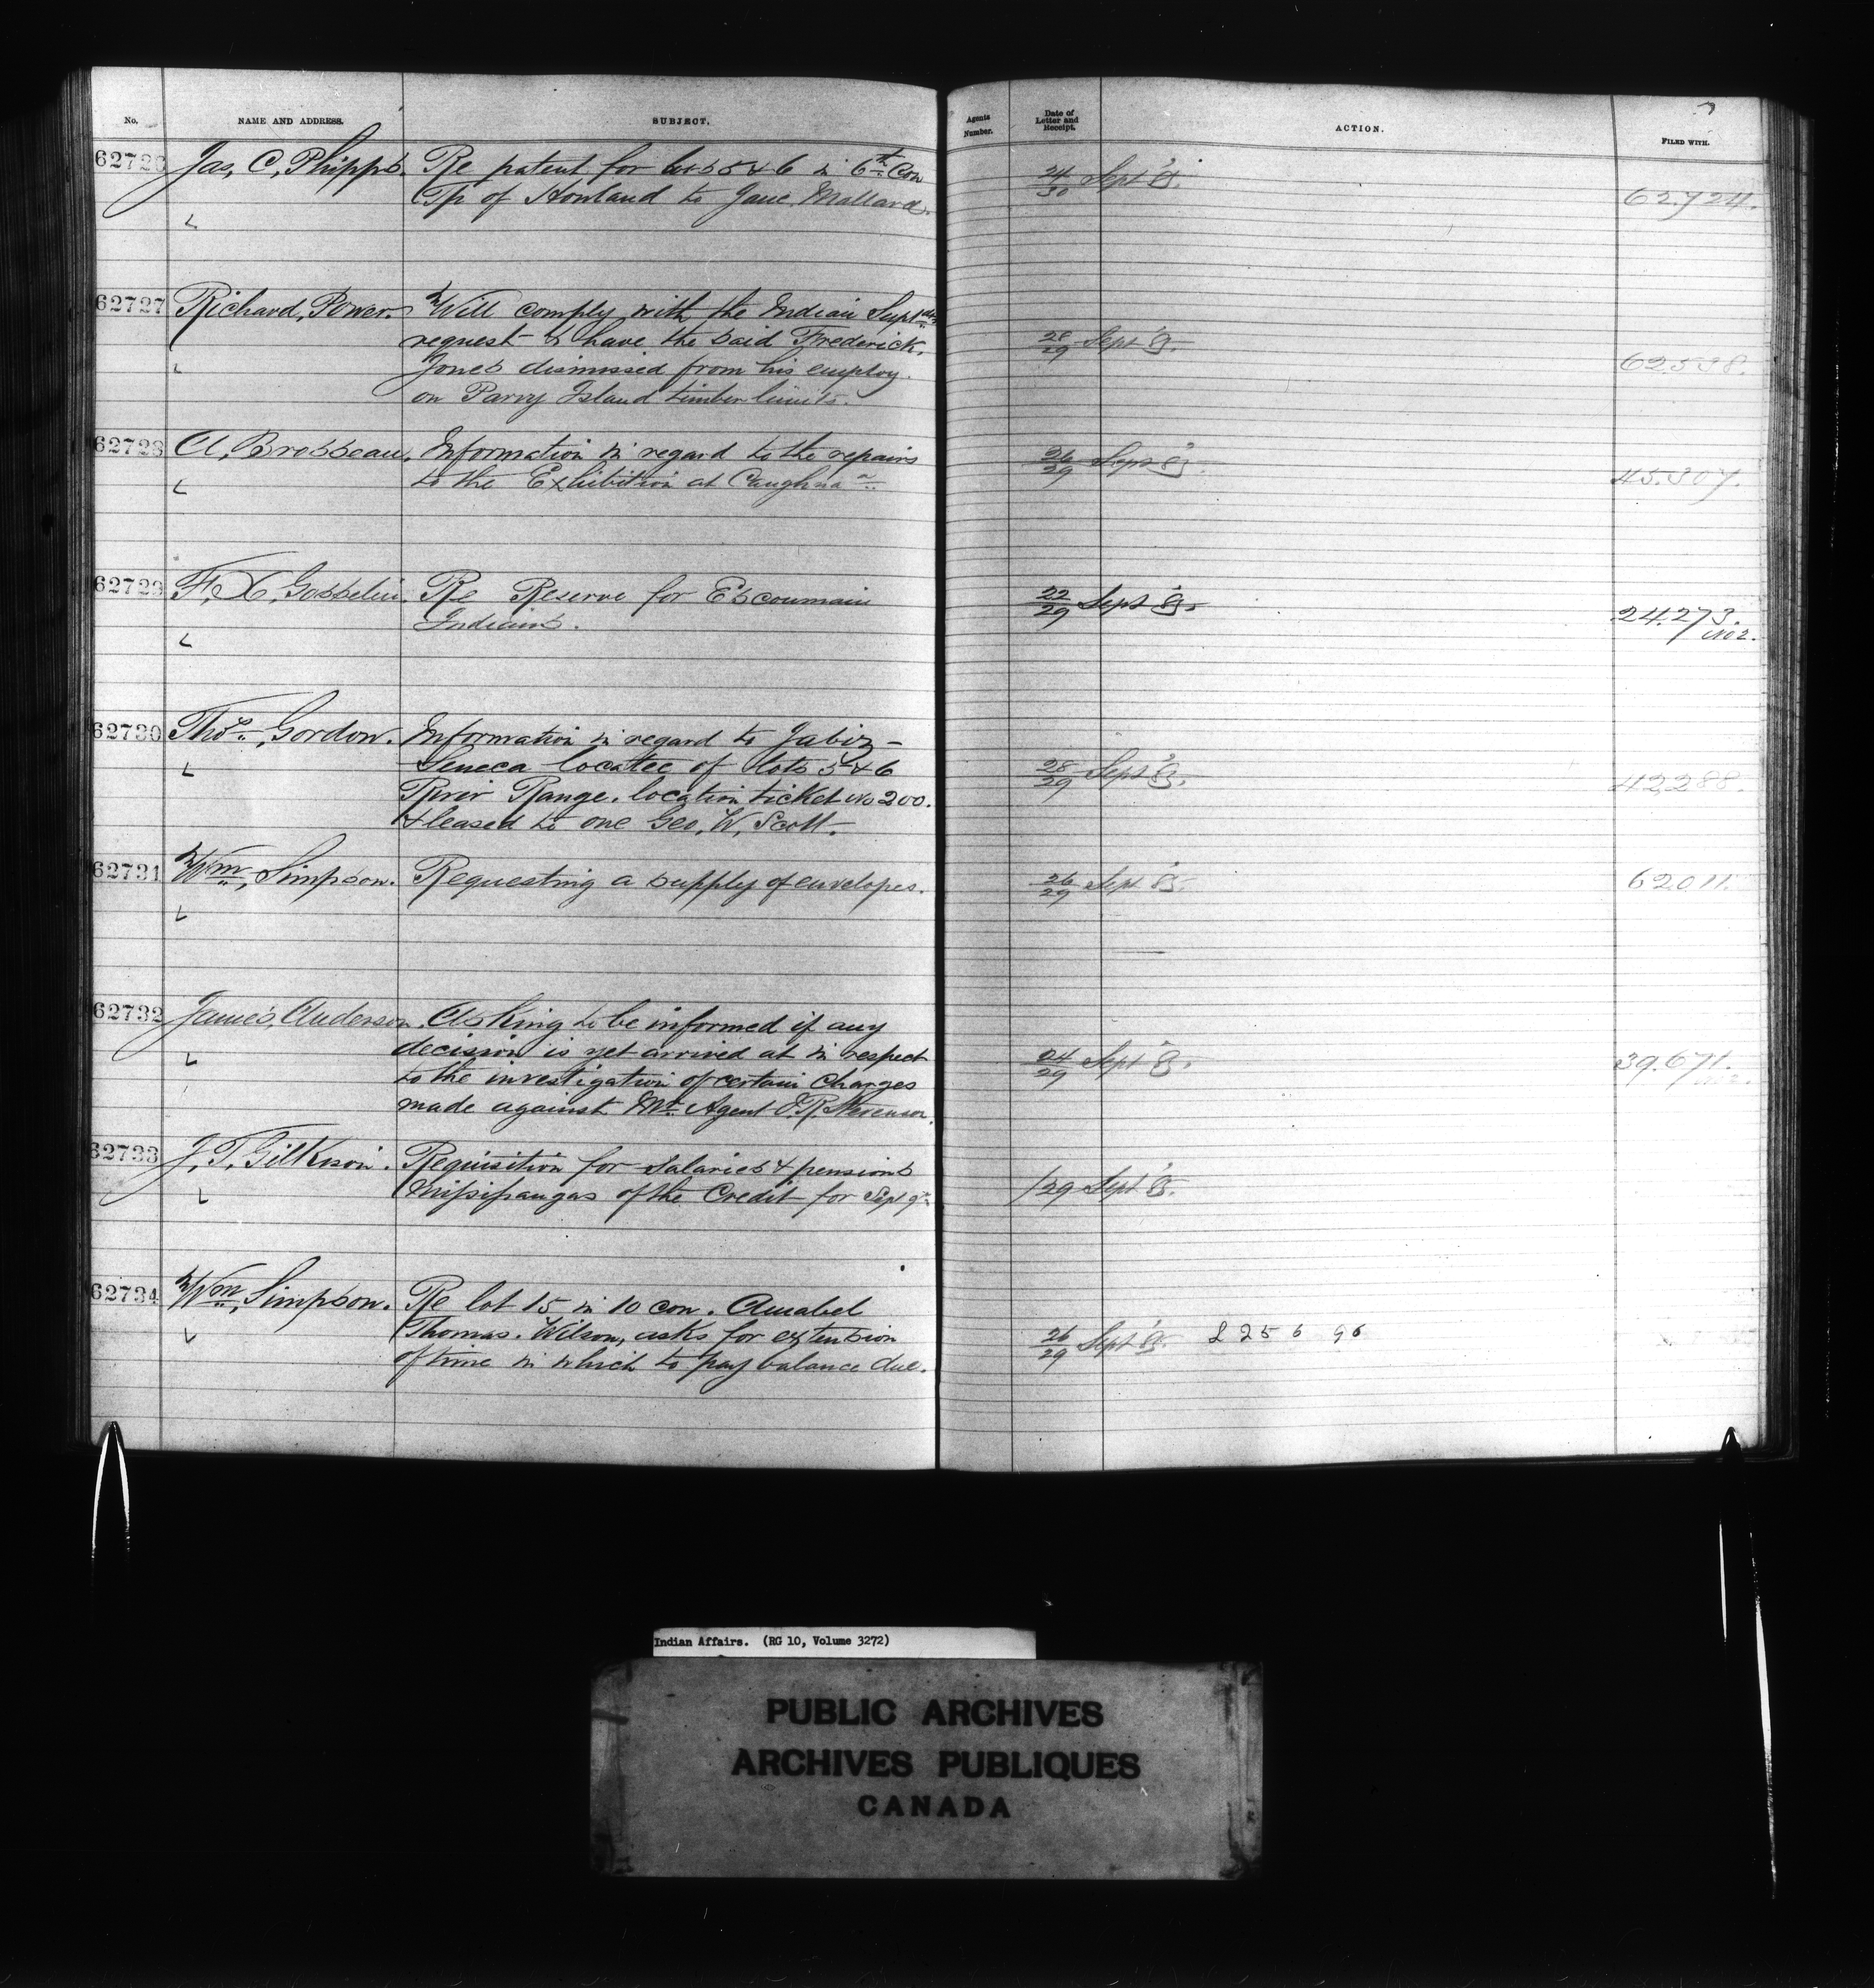 No. NAME AND ADDRESS. SUBJECT. Agents Number. Date of Letter and Receipt. ACTION. FILED WITH.
62726 Jas, C, Phipps. Re patent for lots 5 & 6 in 6th Con
Tp of Howland to Jane Mallard. 24/30 Sept 85. 62,724.
62727 Richard, Power. Will comply with the Indian Supt
request to have the said Frederick, 28/29 Sept 85.
Jones dismissed from his employ 62,538.
on Parry Island timber limits.
62728 A, Brosseau. Information in regard to the repairs 26/29 Sept 85.
to the Exhibition at Caughna 45.307.
62729 F, X, Gosselin. Re Reserve for Escoumain 22/29 Sept 85.
Indians. 24.273. No 2.
62730 Thos., Gordon. Information in regard to Jabiz
Seneca locatee of lots 5 & 6 28/29 Sept 85. 42,288.
River Range. location ticket No 200.
& leased to one Geo, W, Scott.
62731 Wm, Simpson. Requesting a supply of envelopes. 26/29 Sept 85. 62.011.
62732 James, Anderson. Asking to be informed if any
decision is yet arrived at in respect 24/29 Sept 85. 39.671.
to the investigation of certain Charges
made against Agent Stevenson.
62733 J, T, Gilkison. Requisition for Salaries & pensions
Missisaugas of the Credit for Sept /29 Sept 85.
62734 Wm, Simpson. Re lot 15 in 10 con. Amabel
Thomas. Wilson, asks for extension 26/29 Sept 85. 2256 96
of time in which to pay balance due.
Indian Affairs. (RG 10, Volume 3272)
PUBLIC ARCHIVES
ARCHIVES PUBLIQUES
CANADA